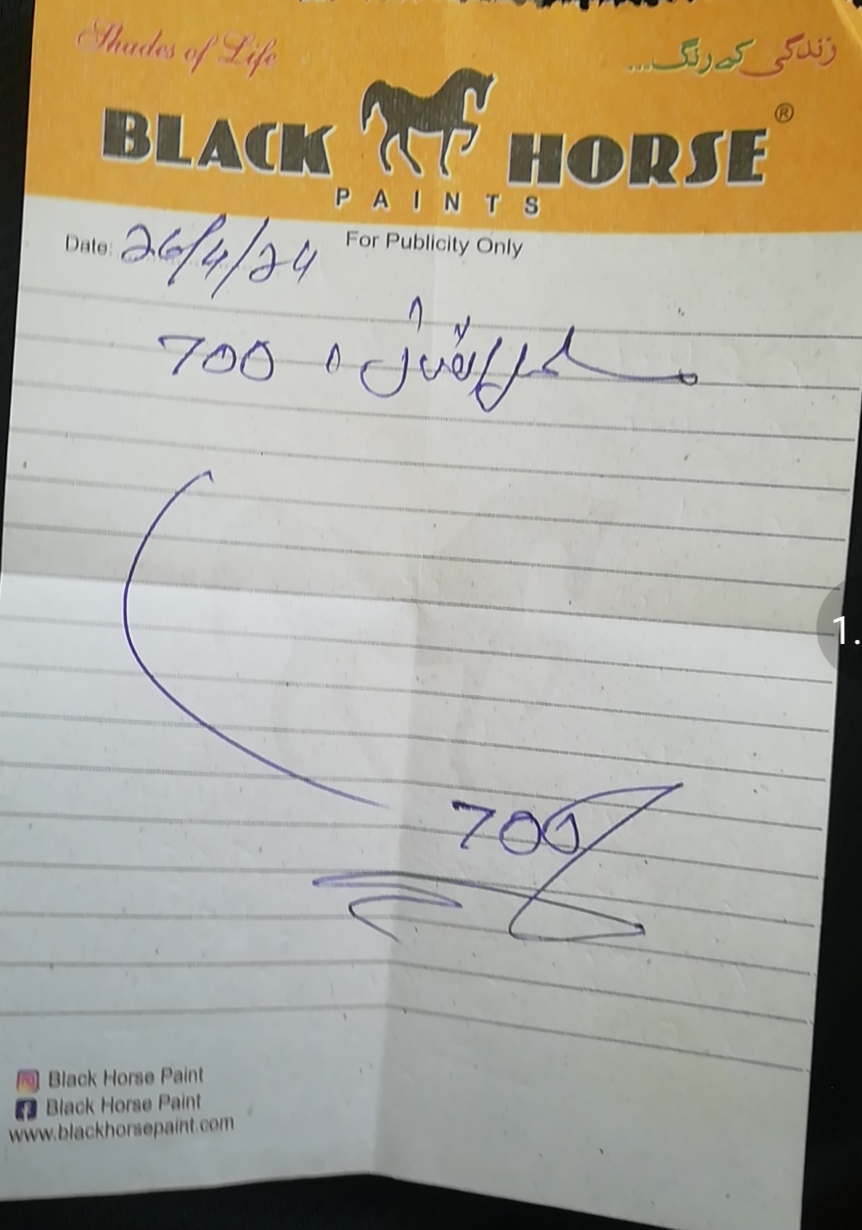 Shades of Life زندگی کے رنگ...
BLACK HORSE ®
PAINTS
Date: 26/4/24 For Publicity Only
700
700
Black Horse Paint
Black Horse Paint
www.blackhorsepaint.com
1.